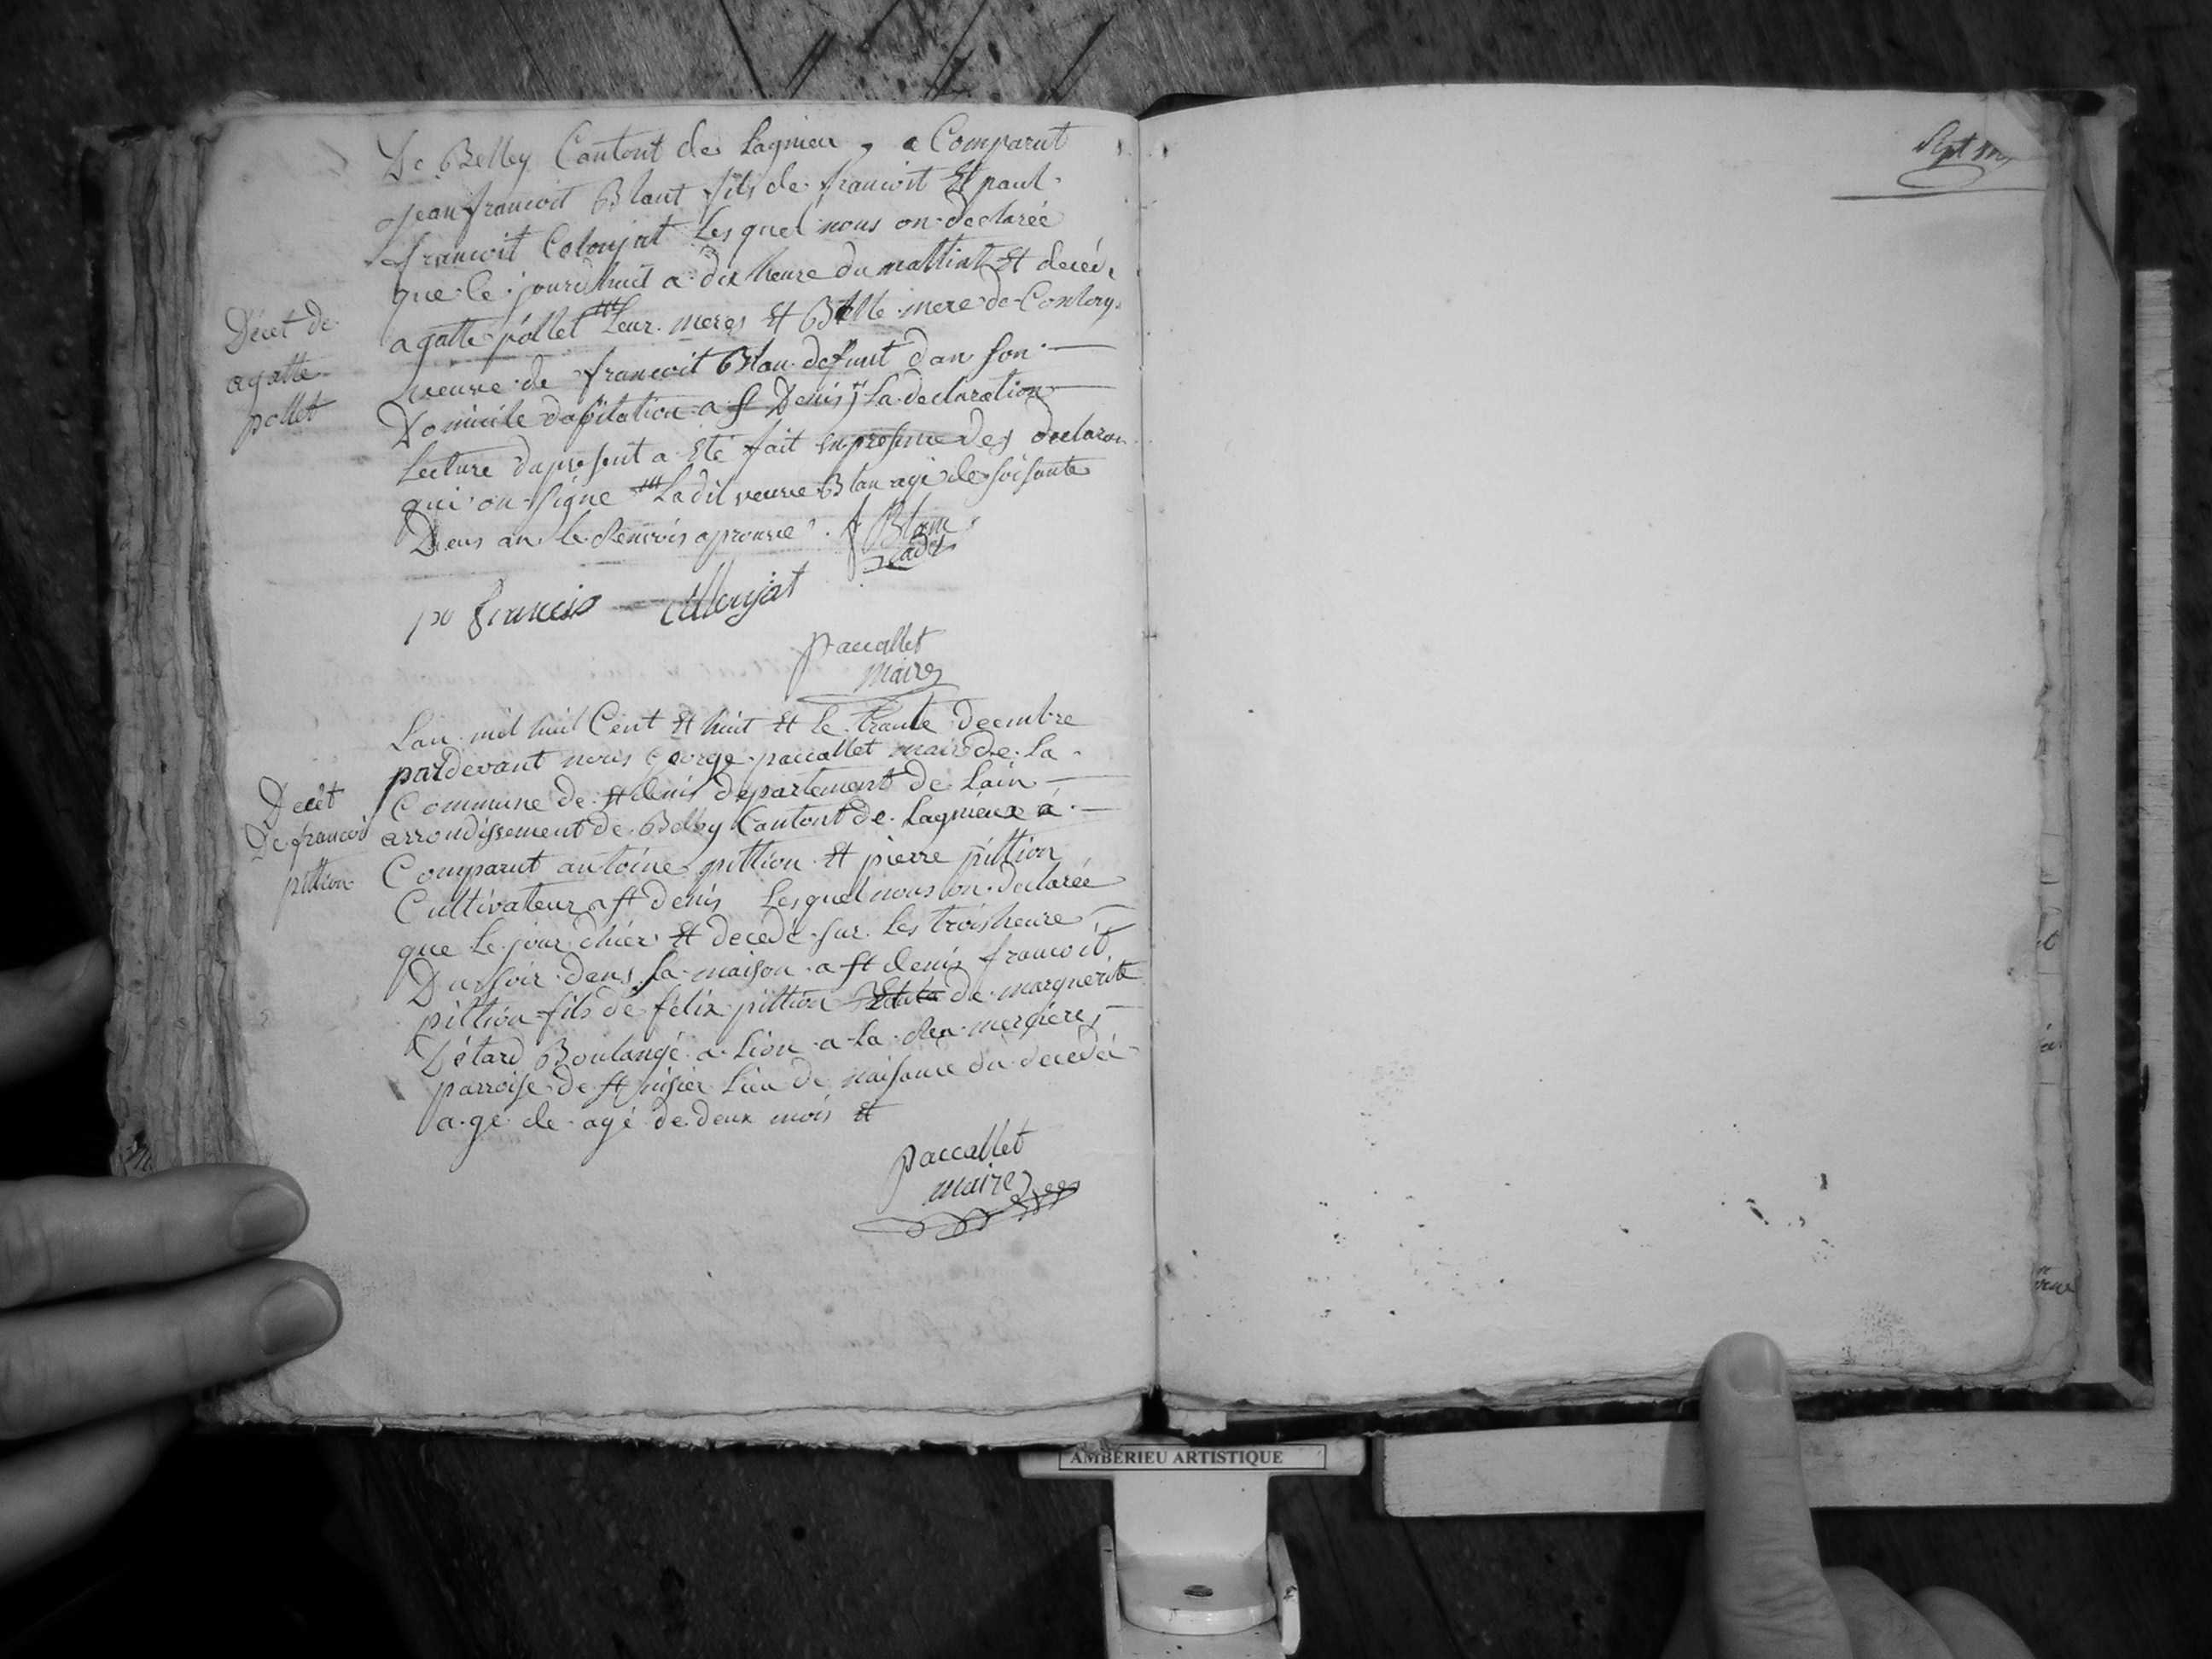 De Belley Cantont de Lagnieu, a Comparut
jean francoit Blant fils de francoit Et paul
francoit Colonjat Lesquel nous on declarée
que Ce jourdhuit a dix heure du mattint Et décédé
Décet de agatte pollet
agatte pollet Leur meres Et Belle mere de
veuve de francoit Blan defunt dan son
Domicile dabitation a st Denis La declaration
Lecture dupresent a Eté fait enpresence des declaran
qui on signe Ladit veuve Blan agé de soisante
Deus an le Renvois aprouve. f Blan
cadet
po francois Collonjat
paccallet
maire
Lan mil huit Cent Et huit Et le trante decembre
pardevant nous george paccallet maire de La
Decet
De francoit
pittion
Commune de st denis departement de Lain
arrondissement de Belley Cantont de Lagnieux a
Comparut antoine pittion Et pierre pittion
Cultivateur a st denis Lesquel nous on declarée
que Le jour dhier Et decedé sur Les trois heure
Du soir dens sa maison a st denis francoit
pittion fils de félix pittion de marguerite
Détard Boulangé a Lion a La Rea mergiere
parroise de st nisier Lieu de naisance du decedé
a gé de agé de deux mois Et
paccallet
maire
AMBERIEU ARTISTIQUE